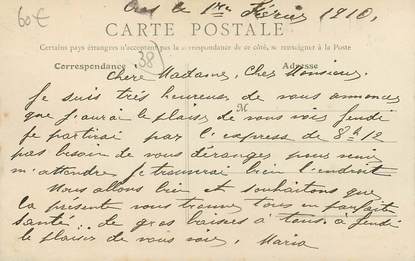 60€
le 1er Février 1910.
CARTE POSTALE
Certains pays étrangers n'acceptent pas la correspondance de ce côté, se renseigner à la Poste
Correspondance
Adresse
38
Chère Madame, Cher Monsieur.
Je suis très heureuse de vous annoncer
M
que j'aurai le plaisir de vous voir jeudi
je partirai par l'express de 8h12
pas besoin de vous déranger pour venir
m'attendre je trouverai bien l'endroit
Nous allons bien et souhaitons que
la présente vous trouve tous en parfaite
santé. de gros baisers à tous. à jeudi
le plaisir de vous voir. Maria